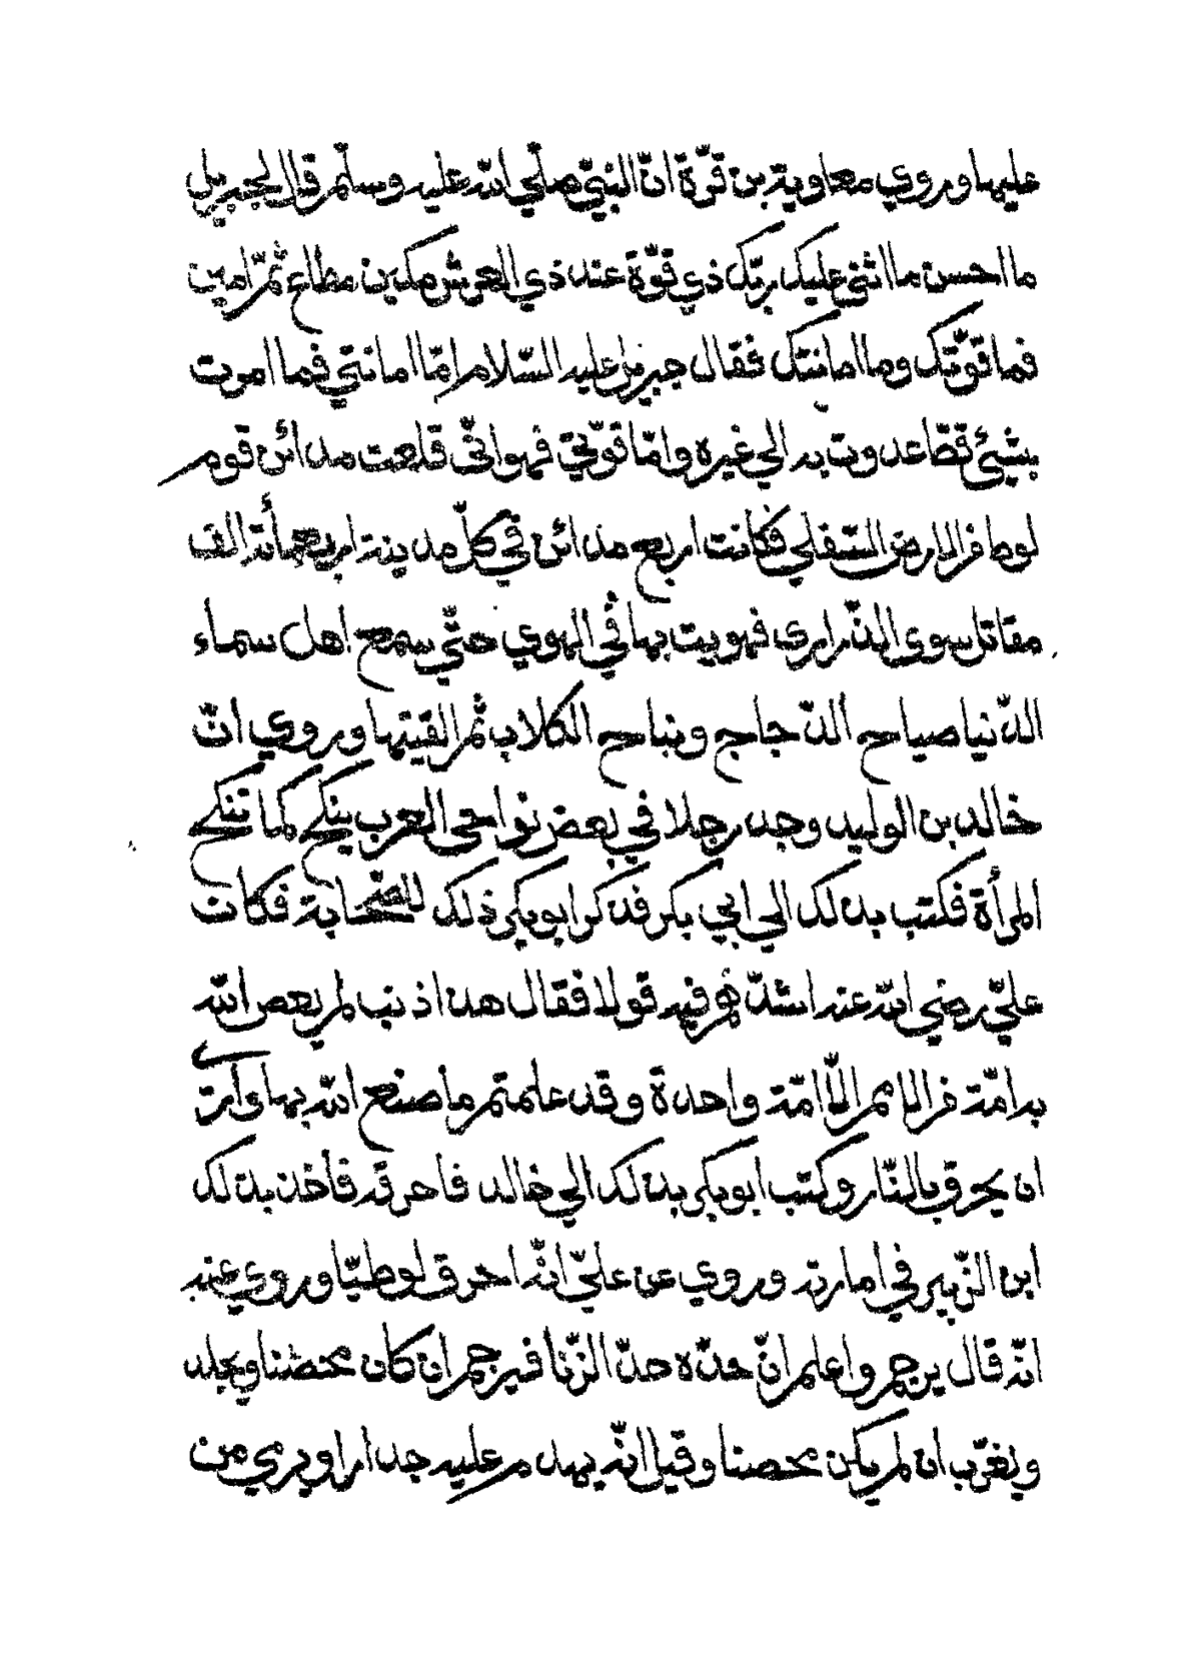 عليها وروي معاوية بن قرّة انّ النبيّ صلّي الله عليه وسلّم قال لجبريل
ما احسن ما اثني عليك ربّك ذي قوّة عند ذي العرش مكين مطاع ثمّ امين
فما قوّتك وما امانتك فقال جبريل عليه السّلام امّا امانتي فما امرت
بشيئ قطّ فعدوت به الي غيره وامّا قوّتي فهو انّي قلعت مدائن قوم
لوط من الارض السّفلي فكانت اربع مدائن في كلّ مدينة اربعمأئة الف
مقاتل سوي الذّراري فهويت بها في الهوي حتّي سمع اهل سماء
الدّنيا صياح الدّجاج ونباح الكلاب ثمّ القيتها وروي انّ
خالد بن الوليد وجد رجلا في بعض نواحي العرب ينكح كما تنكح
المرأة فكتب بذلك الي ابي بكر فذكر ابو بكر ذلك للصّحابة فكان
عليّ رضي الله عنه اشدّهم فيه قولا فقال هذا ذنب لم يعص الله
به امّة من الامم الّا امّة واحدة وقد علمتم ما صنع الله بها وأري
ان يحرق بالنّار وكتب ابو بكر بذلك الي خالد فاحرقه فأخذ بذلك
ابن الزّبير في امارته وروي عن عليّ انّه احرق لوطيّا وروي عنه
انّه قال يرجم واعلم انّ حدّه حدّ الزّنا فيرجم ان كان محصنا ويجلد
ويغرّب ان لم يكن محصنا وقيل انّه يهدم عليه جدارا ويرمي من